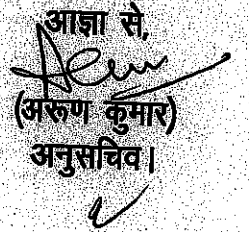 आज्ञा से,
(अरूण कुमार)
अनुसचिव।